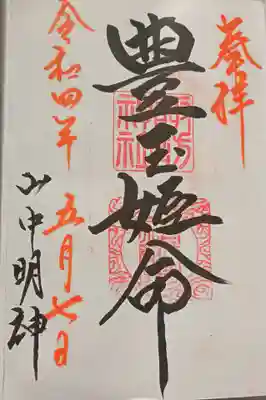 奉拝
豊玉姫命
令和四年 五月七日
山中明神